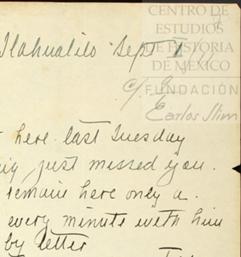 CENTRO DE
ESTUDIOS
DE HISTORIA
DE MÉXICO
FUNDACIÓN
Carlos Slim
Tlahualilo Sept
here last Tuesday
just missed you.
remain here only a
every minute with him
by letter